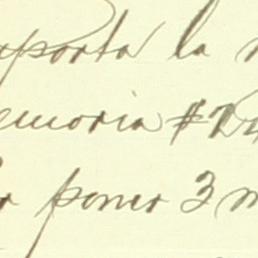 mporta la
emoria #2
poner 3 m